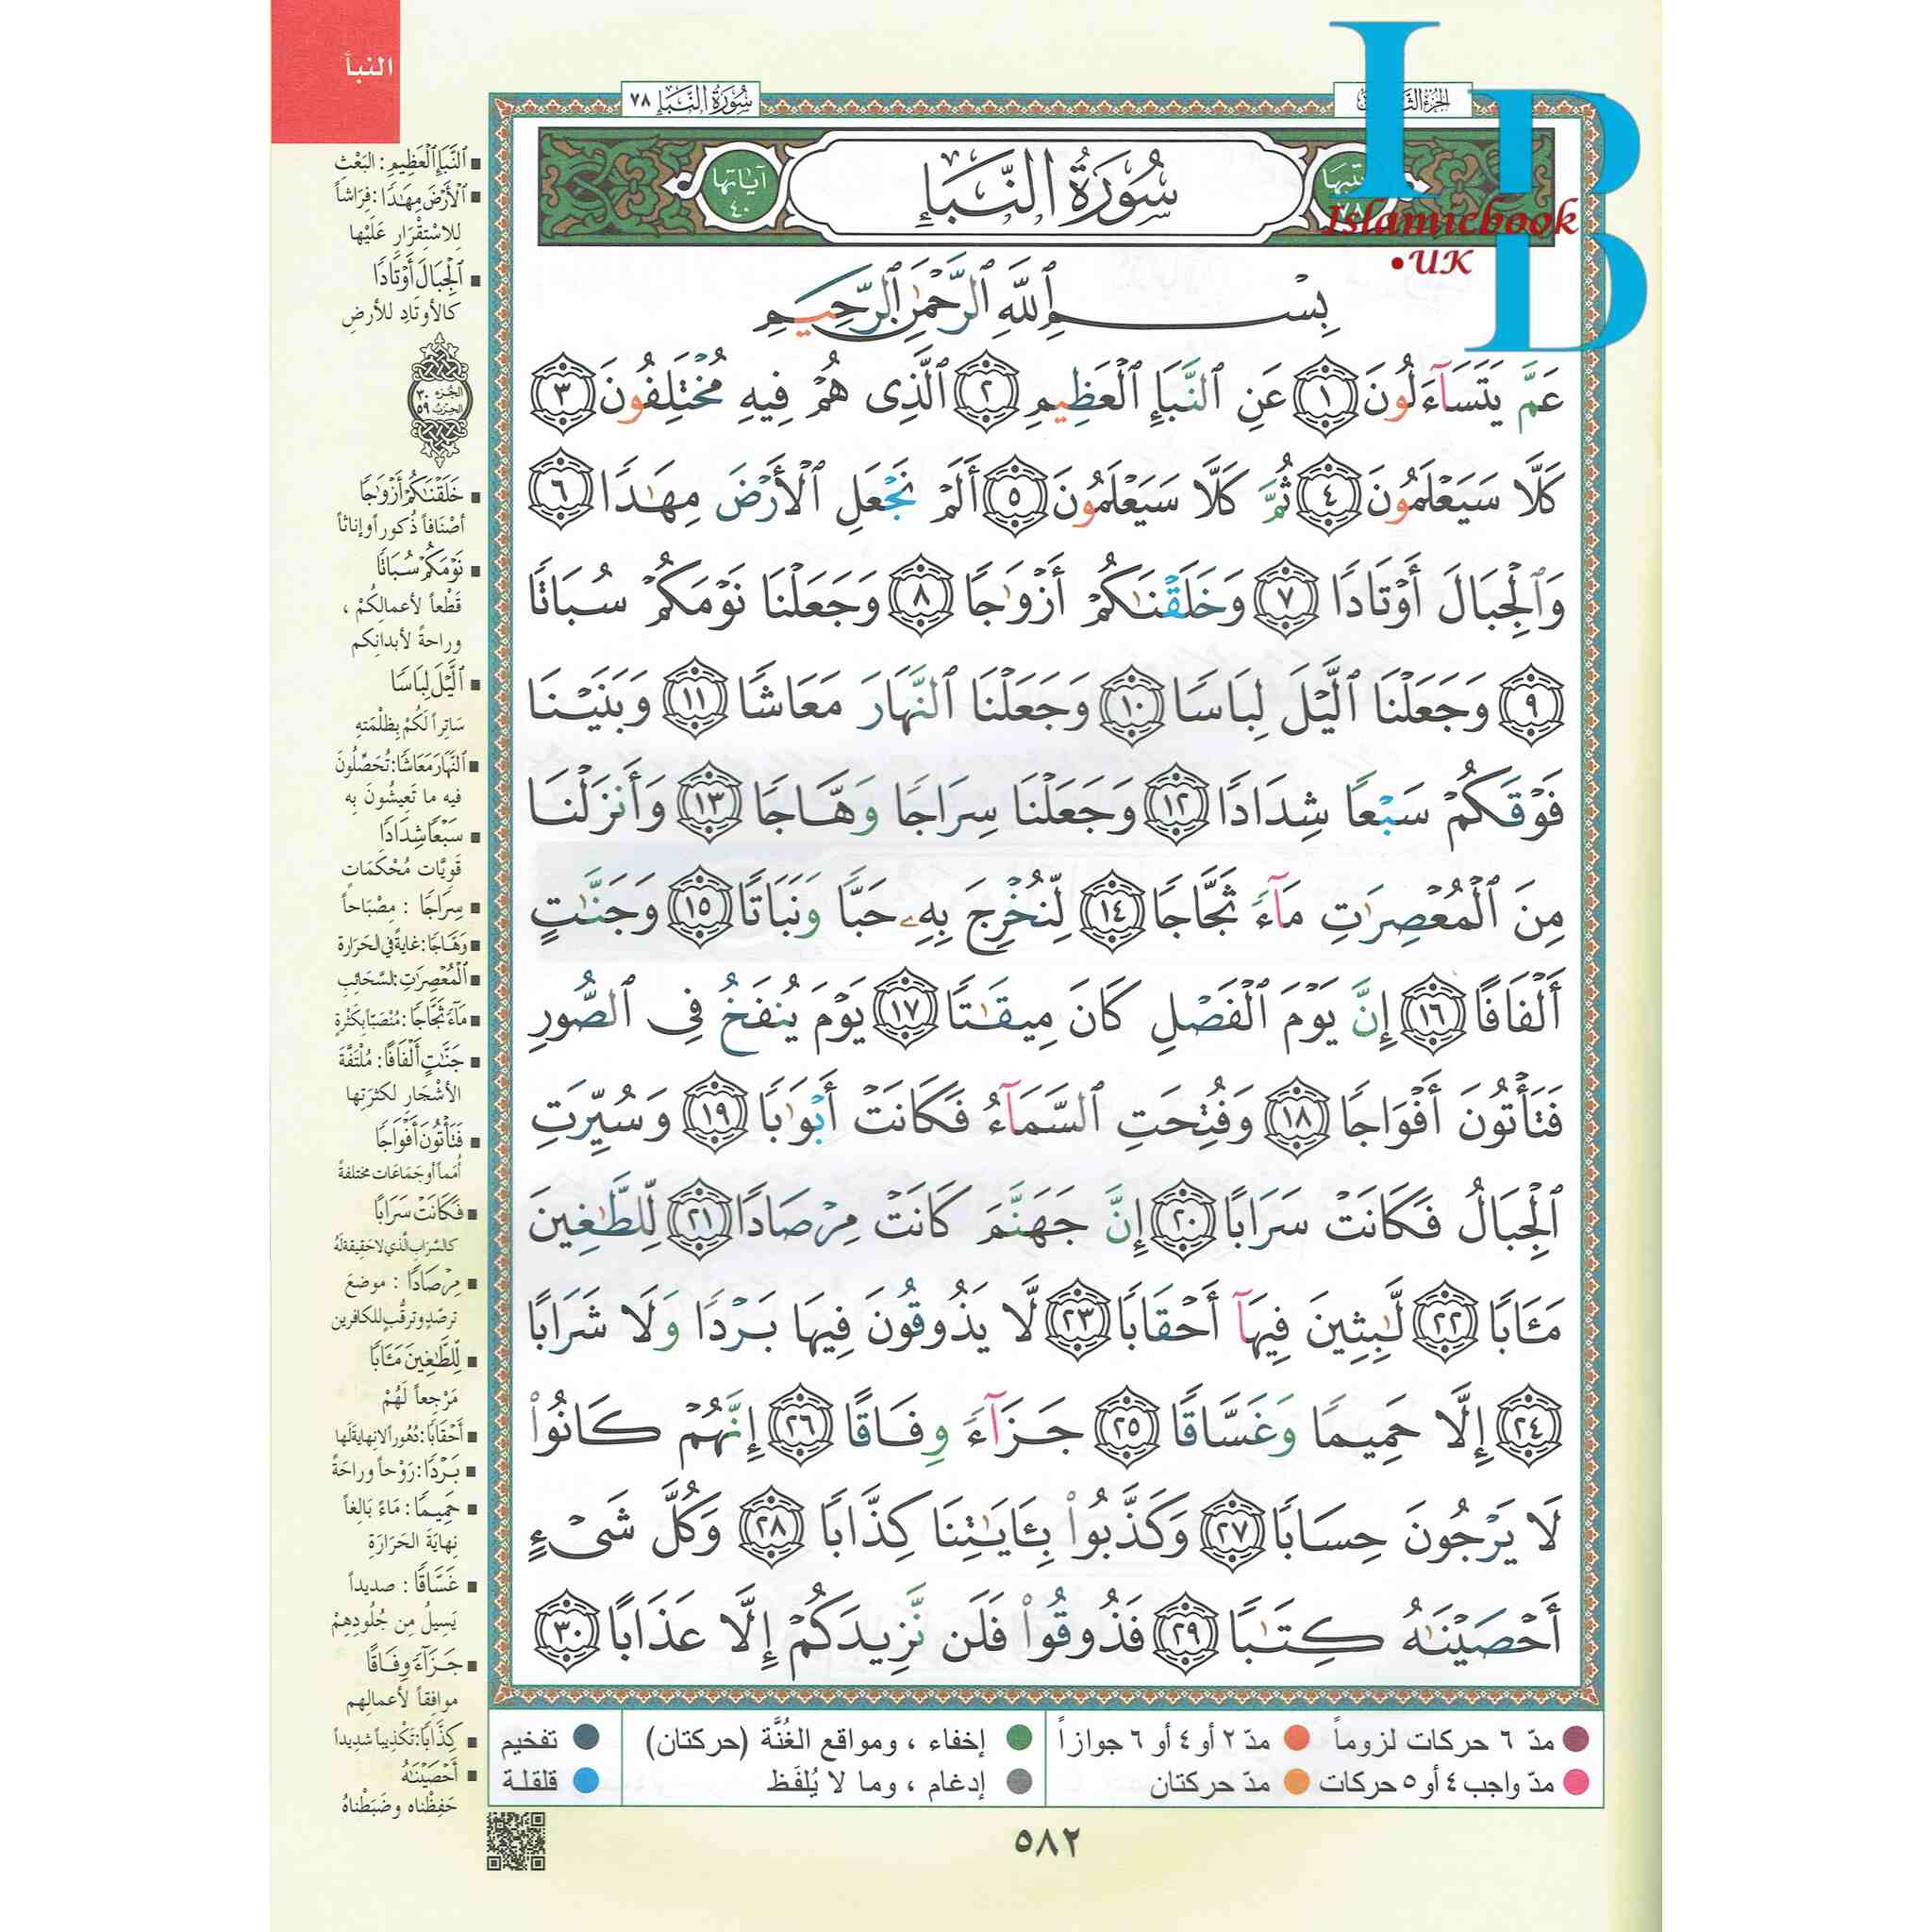 النبأ
سُورَةُ النَّبَإِ ٧٨
سُورَةُ النَّبَإِ
آيَاتها
٤٠
IB
Islamicbook
•UK
بِسْمِ ٱللَّهِ ٱلرَّحْمَٰنِ ٱلرَّحِيمِ
عَمَّ يَتَسَآءَلُونَ ١ عَنِ ٱلنَّبَإِ ٱلْعَظِيمِ ٢ ٱلَّذِى هُمْ فِيهِ مُخْتَلِفُونَ ٣
كَلَّا سَيَعْلَمُونَ ٤ ثُمَّ كَلَّا سَيَعْلَمُونَ ٥ أَلَمْ نَجْعَلِ ٱلْأَرْضَ مِهَٰدًا ٦
وَٱلْجِبَالَ أَوْتَادًا ٧ وَخَلَقْنَٰكُمْ أَزْوَٰجًا ٨ وَجَعَلْنَا نَوْمَكُمْ سُبَاتًا
٩ وَجَعَلْنَا ٱلَّيْلَ لِبَاسًا ١٠ وَجَعَلْنَا ٱلنَّهَارَ مَعَاشًا ١١ وَبَنَيْنَا
فَوْقَكُمْ سَبْعًا شِدَادًا ١٢ وَجَعَلْنَا سِرَاجًا وَهَّاجًا ١٣ وَأَنزَلْنَا
مِنَ ٱلْمُعْصِرَٰتِ مَآءً ثَجَّاجًا ١٤ لِّنُخْرِجَ بِهِۦ حَبًّا وَنَبَاتًا ١٥ وَجَنَّٰتٍ
أَلْفَافًا ١٦ إِنَّ يَوْمَ ٱلْفَصْلِ كَانَ مِيقَٰتًا ١٧ يَوْمَ يُنفَخُ فِى ٱلصُّورِ
فَتَأْتُونَ أَفْوَاجًا ١٨ وَفُتِحَتِ ٱلسَّمَآءُ فَكَانَتْ أَبْوَٰبًا ١٩ وَسُيِّرَتِ
ٱلْجِبَالُ فَكَانَتْ سَرَابًا ٢٠ إِنَّ جَهَنَّمَ كَانَتْ مِرْصَادًا ٢١ لِّلطَّٰغِينَ
مَـَٔابًا ٢٢ لَّٰبِثِينَ فِيهَآ أَحْقَابًا ٢٣ لَّا يَذُوقُونَ فِيهَا بَرْدًا وَلَا شَرَابًا
٢٤ إِلَّا حَمِيمًا وَغَسَّاقًا ٢٥ جَزَآءً وِفَاقًا ٢٦ إِنَّهُمْ كَانُوا۟
لَا يَرْجُونَ حِسَابًا ٢٧ وَكَذَّبُوا۟ بِـَٔايَٰتِنَا كِذَّابًا ٢٨ وَكُلَّ شَىْءٍ
أَحْصَيْنَٰهُ كِتَٰبًا ٢٩ فَذُوقُوا۟ فَلَن نَّزِيدَكُمْ إِلَّا عَذَابًا ٣٠
ٱلنَّبَإِ ٱلْعَظِيمِ : البَعْثِ
ٱلْأَرْضَ مِهَٰدًا : فِرَاشاً
لِلاسْتِقْرَارِ عَلَيْها
ٱلْجِبَالَ أَوْتَادًا
كالأوتَادِ للأرضِ
الجُزء ٣٠
الحِزبُ ٥٩
خَلَقْنَٰكُمْ أَزْوَٰجًا
أصْنَافاً ذُكوراً وإناثاً
نَوْمَكُمْ سُبَاتًا
قَطْعاً لأعمالِكُمْ ،
وراحةً لأبدانِكم
ٱلَّيْلَ لِبَاسًا
سَاتِراً لَكُمْ بِظلْمَتِهِ
ٱلنَّهَارَ مَعَاشًا : تُحَصِّلُونَ
فيه ما تَعِيشُونَ بِه
سَبْعًا شِدَادًا
قَوِيَّات مُحْكَمَاتٍ
سِرَاجًا : مِصْبَاحاً
وَهَّاجًا : غايةً في الحَرَارة
ٱلْمُعْصِرَٰتِ : السَّحَائِبِ
مَآءً ثَجَّاجًا : مُنْصَبّاً بِكَثْرةٍ
جَنَّٰتٍ أَلْفَافًا : مُلْتَفَّةَ
الأشْجَارِ لكثرَتِها
فَتَأْتُونَ أَفْوَاجًا
أُمَماً أو جَمَاعَات مختلفةً
فَكَانَتْ سَرَابًا
كالسَّرَابِ الَّذي لا حَقِيقَةَ لَهُ
مِرْصَادًا : موضعَ
ترصّدٍ وترقُّبٍ للكافرين
لِّلطَّٰغِينَ مَـَٔابًا
مَرْجِعاً لَهُمْ
أَحْقَابًا : دُهُوراً لا نِهايَةَ لَها
بَرْدًا : رَوْحاً وراحَةً
حَمِيمًا : مَاءً بَالِغاً
نِهايَةَ الحَرَارَةِ
غَسَّاقًا : صديداً
يَسِيلُ مِن جُلُودِهِمْ
جَزَآءً وِفَاقًا
موافِقاً لأعمالِهِم
كِذَّابًا : تَكْذِيباً شديداً
أَحْصَيْنَٰهُ
حَفِظْناه وضَبَطْناهُ
مدّ ٦ حركات لزوماً
مدّ ٢ أو ٤ أو ٦ جوازاً
إخفاء ، ومواقع الغُنَّة (حركتان)
تفخيم
مدّ واجب ٤ أو ٥ حركات
مدّ حركتان
إدغام ، وما لا يُلفَظ
قلقلة
٥٨٢